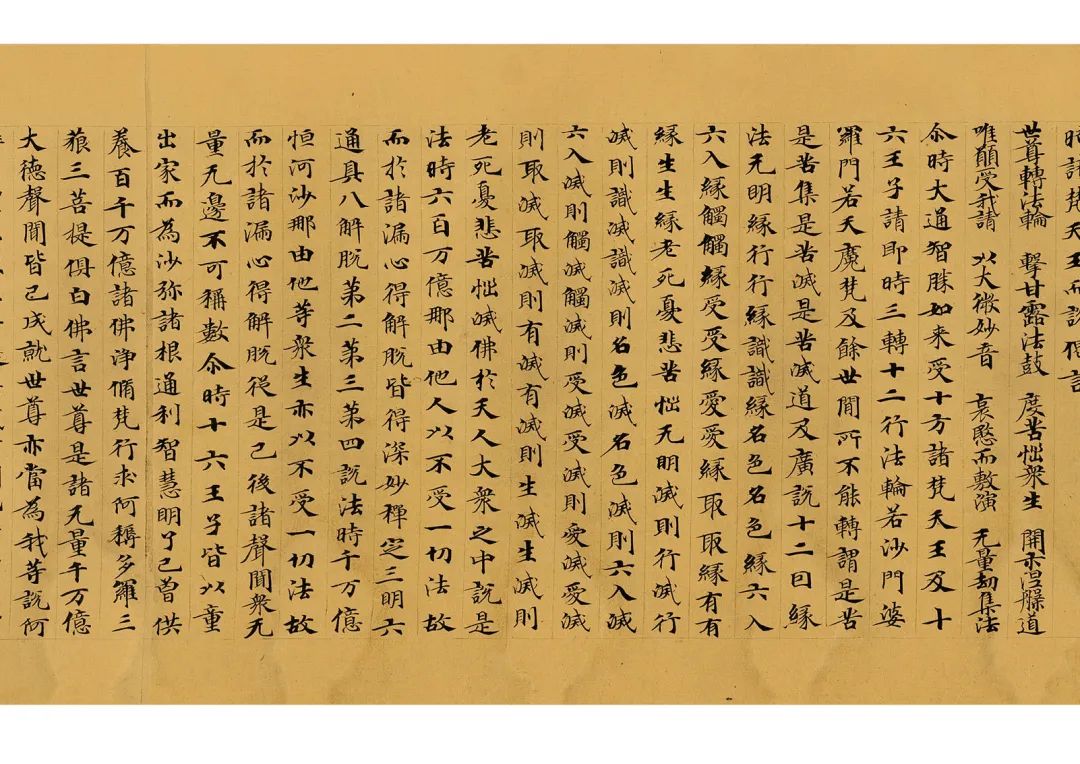 時諸梵天王而說偈言
世尊轉法輪　擊甘露法鼓　度苦惱衆生　開示涅槃道
唯願受我請　以大微妙音　哀愍而敷演　无量劫集法
尒時大通智勝如来受十方諸梵天王及十
六王子請即時三轉十二行法輪若沙門婆
羅門若天魔梵及餘世間所不能轉謂是苦
是苦集是苦滅是苦滅道及廣說十二因緣
法无明緣行行緣識識緣名色名色緣六入
六入緣觸觸緣受受緣愛愛緣取取緣有有
緣生生緣老死憂悲苦惱无明滅則行滅行
滅則識滅識滅則名色滅名色滅則六入滅
六入滅則觸滅觸滅則受滅受滅則愛滅愛滅
則取滅取滅則有滅有滅則生滅生滅則
老死憂悲苦惱滅佛於天人大衆之中說是
法時六百万億那由他人以不受一切法故
而於諸漏心得解脫皆得深妙禪定三明六
通具八解脫第二第三第四說法時千万億
恒河沙那由他等衆生亦以不受一切法故
而於諸漏心得解脫從是已後諸聲聞衆无
量无邊不可稱數尒時十六王子皆以童
出家而為沙弥諸根通利智慧明了已曾供
養百千万億諸佛淨脩梵行求阿耨多羅三
藐三菩提俱白佛言世尊是諸无量千万億
大德聲聞皆已成就世尊亦當為我等說阿